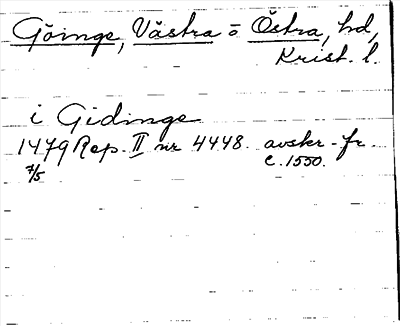 Göinge, Västra o Östra, hd,
Krist. l.
i Gidinge
1479 Rep. II nr 4448. avskr. fr.
7/5 c. 1550.